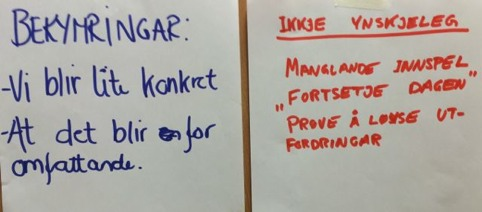 BEKYMRINGAR:
-Vi blir lite konkret
-At det blir for
omfattande.
IKKJE YNSKJELEG
MANGLANDE INNSPEL
"FORTSETJE DAGEN"
PRØVE Å LØYSE UT-
FORDRINGAR